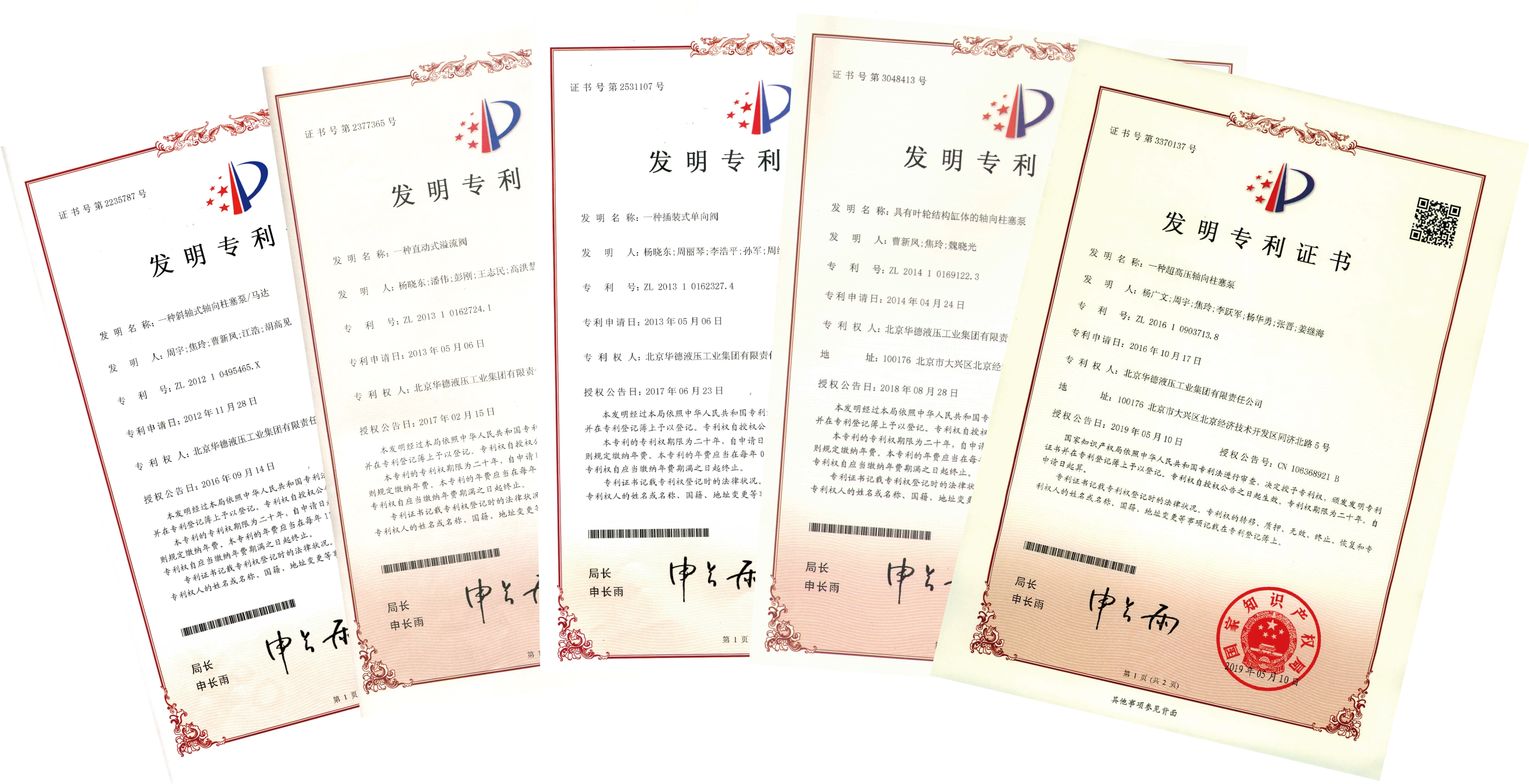 证书号第2235787号
发明专利
发明名称：一种斜轴式轴向柱塞泵/马达
发明人：周宇;焦玲;曹新凤;江浩;胡高见
专利号：ZL 2012 1 0495465.X
专利申请日：2012年11月28日
专利权人：北京华德液压工业集团有限责任
授权公告日：2016年09月14日
本发明经过本局依照中华人民共和国专利法
并在专利登记簿上予以登记。专利权自授权公
本专利的专利权期限为二十年，自申请日
则规定缴纳年费。本专利的年费应当在每年1
专利权自应当缴纳年费期满之日起终止。
专利证书记载专利权登记时的法律状况。
专利权人的姓名或名称、国籍、地址变更等
局长
申长雨
申长雨
第1页
证书号第2377365号
发明专利
发明名称：一种直动式溢流阀
发明人：杨晓东;潘伟;彭刚;王志民;高洪
专利号：ZL 2013 1 0162724.1
专利申请日：2013年05月06日
专利权人：北京华德液压工业集团有限责
授权公告日：2017年02月15日
本发明经过本局依照中华人民共和国专
并在专利登记簿上予以登记。专利权自授权
本专利的专利权期限为二十年，自申请
则规定缴纳年费。本专利的年费应当在每年
专利权自应当缴纳年费期满之日起终止。
专利证书记载专利权登记时的法律状况
专利权人的姓名或名称、国籍、地址变更
局长
申长雨
申长雨
第1
证书号第2531107号
发明专利
发明名称：一种插装式单向阀
发明人：杨晓东;周丽琴;李浩平;孙军;周
专利号：ZL 2013 1 0162327.4
专利申请日：2013年05月06日
专利权人：北京华德液压工业集团有限责
授权公告日：2017年06月23日
本发明经过本局依照中华人民共和国专利
并在专利登记簿上予以登记。专利权自授权公
本专利的专利权期限为二十年，自申请日
则规定缴纳年费。本专利的年费应当在每年0
专利权自应当缴纳年费期满之日起终止。
专利证书记载专利权登记时的法律状况。
专利权人的姓名或名称、国籍、地址变更等
局长
申长雨
申长雨
第1页
证书号第3048413号
发明专利
发明名称：具有叶轮结构缸体的轴向柱塞泵
发明人：曹新凤;焦玲;魏晓光
专利号：ZL 2014 1 0169122.3
专利申请日：2014年04月24日
专利权人：北京华德液压工业集团有限责
地址：100176 北京市大兴区北京经
授权公告日：2018年08月28日
本发明经过本局依照中华人民共和国专
并在专利登记簿上予以登记。专利权自授权
本专利的专利权期限为二十年，自申请
则规定缴纳年费。本专利的年费应当在每年
专利权自应当缴纳年费期满之日起终止。
专利证书记载专利权登记时的法律状况
专利权人的姓名或名称、国籍、地址变更
局长
申长雨
申长
证书号第3370137号
发明专利证书
发明名称：一种超高压轴向柱塞泵
发明人：杨广文;周宇;焦玲;李跃军;杨华勇;张晋;姜继海
专利号：ZL 2016 1 0903713.8
专利申请日：2016年10月17日
专利权人：北京华德液压工业集团有限责任公司
地址：100176 北京市大兴区北京经济技术开发区同济北路5号
授权公告日：2019年05月10日 授权公告号：CN 106368921 B
国家知识产权局依照中华人民共和国专利法进行审查，决定授予专利权，颁发发明专利
证书并在专利登记簿上予以登记。专利权自授权公告之日起生效。专利权期限为二十年，自
申请日起算。
专利证书记载专利权登记时的法律状况。专利权的转移、质押、无效、终止、恢复和专
利权人的姓名或名称、国籍、地址变更等事项记载在专利登记簿上。
局长
申长雨
申长雨
国家知识产权局
2019年05月10日
第1页(共2页)
其他事项参见背面